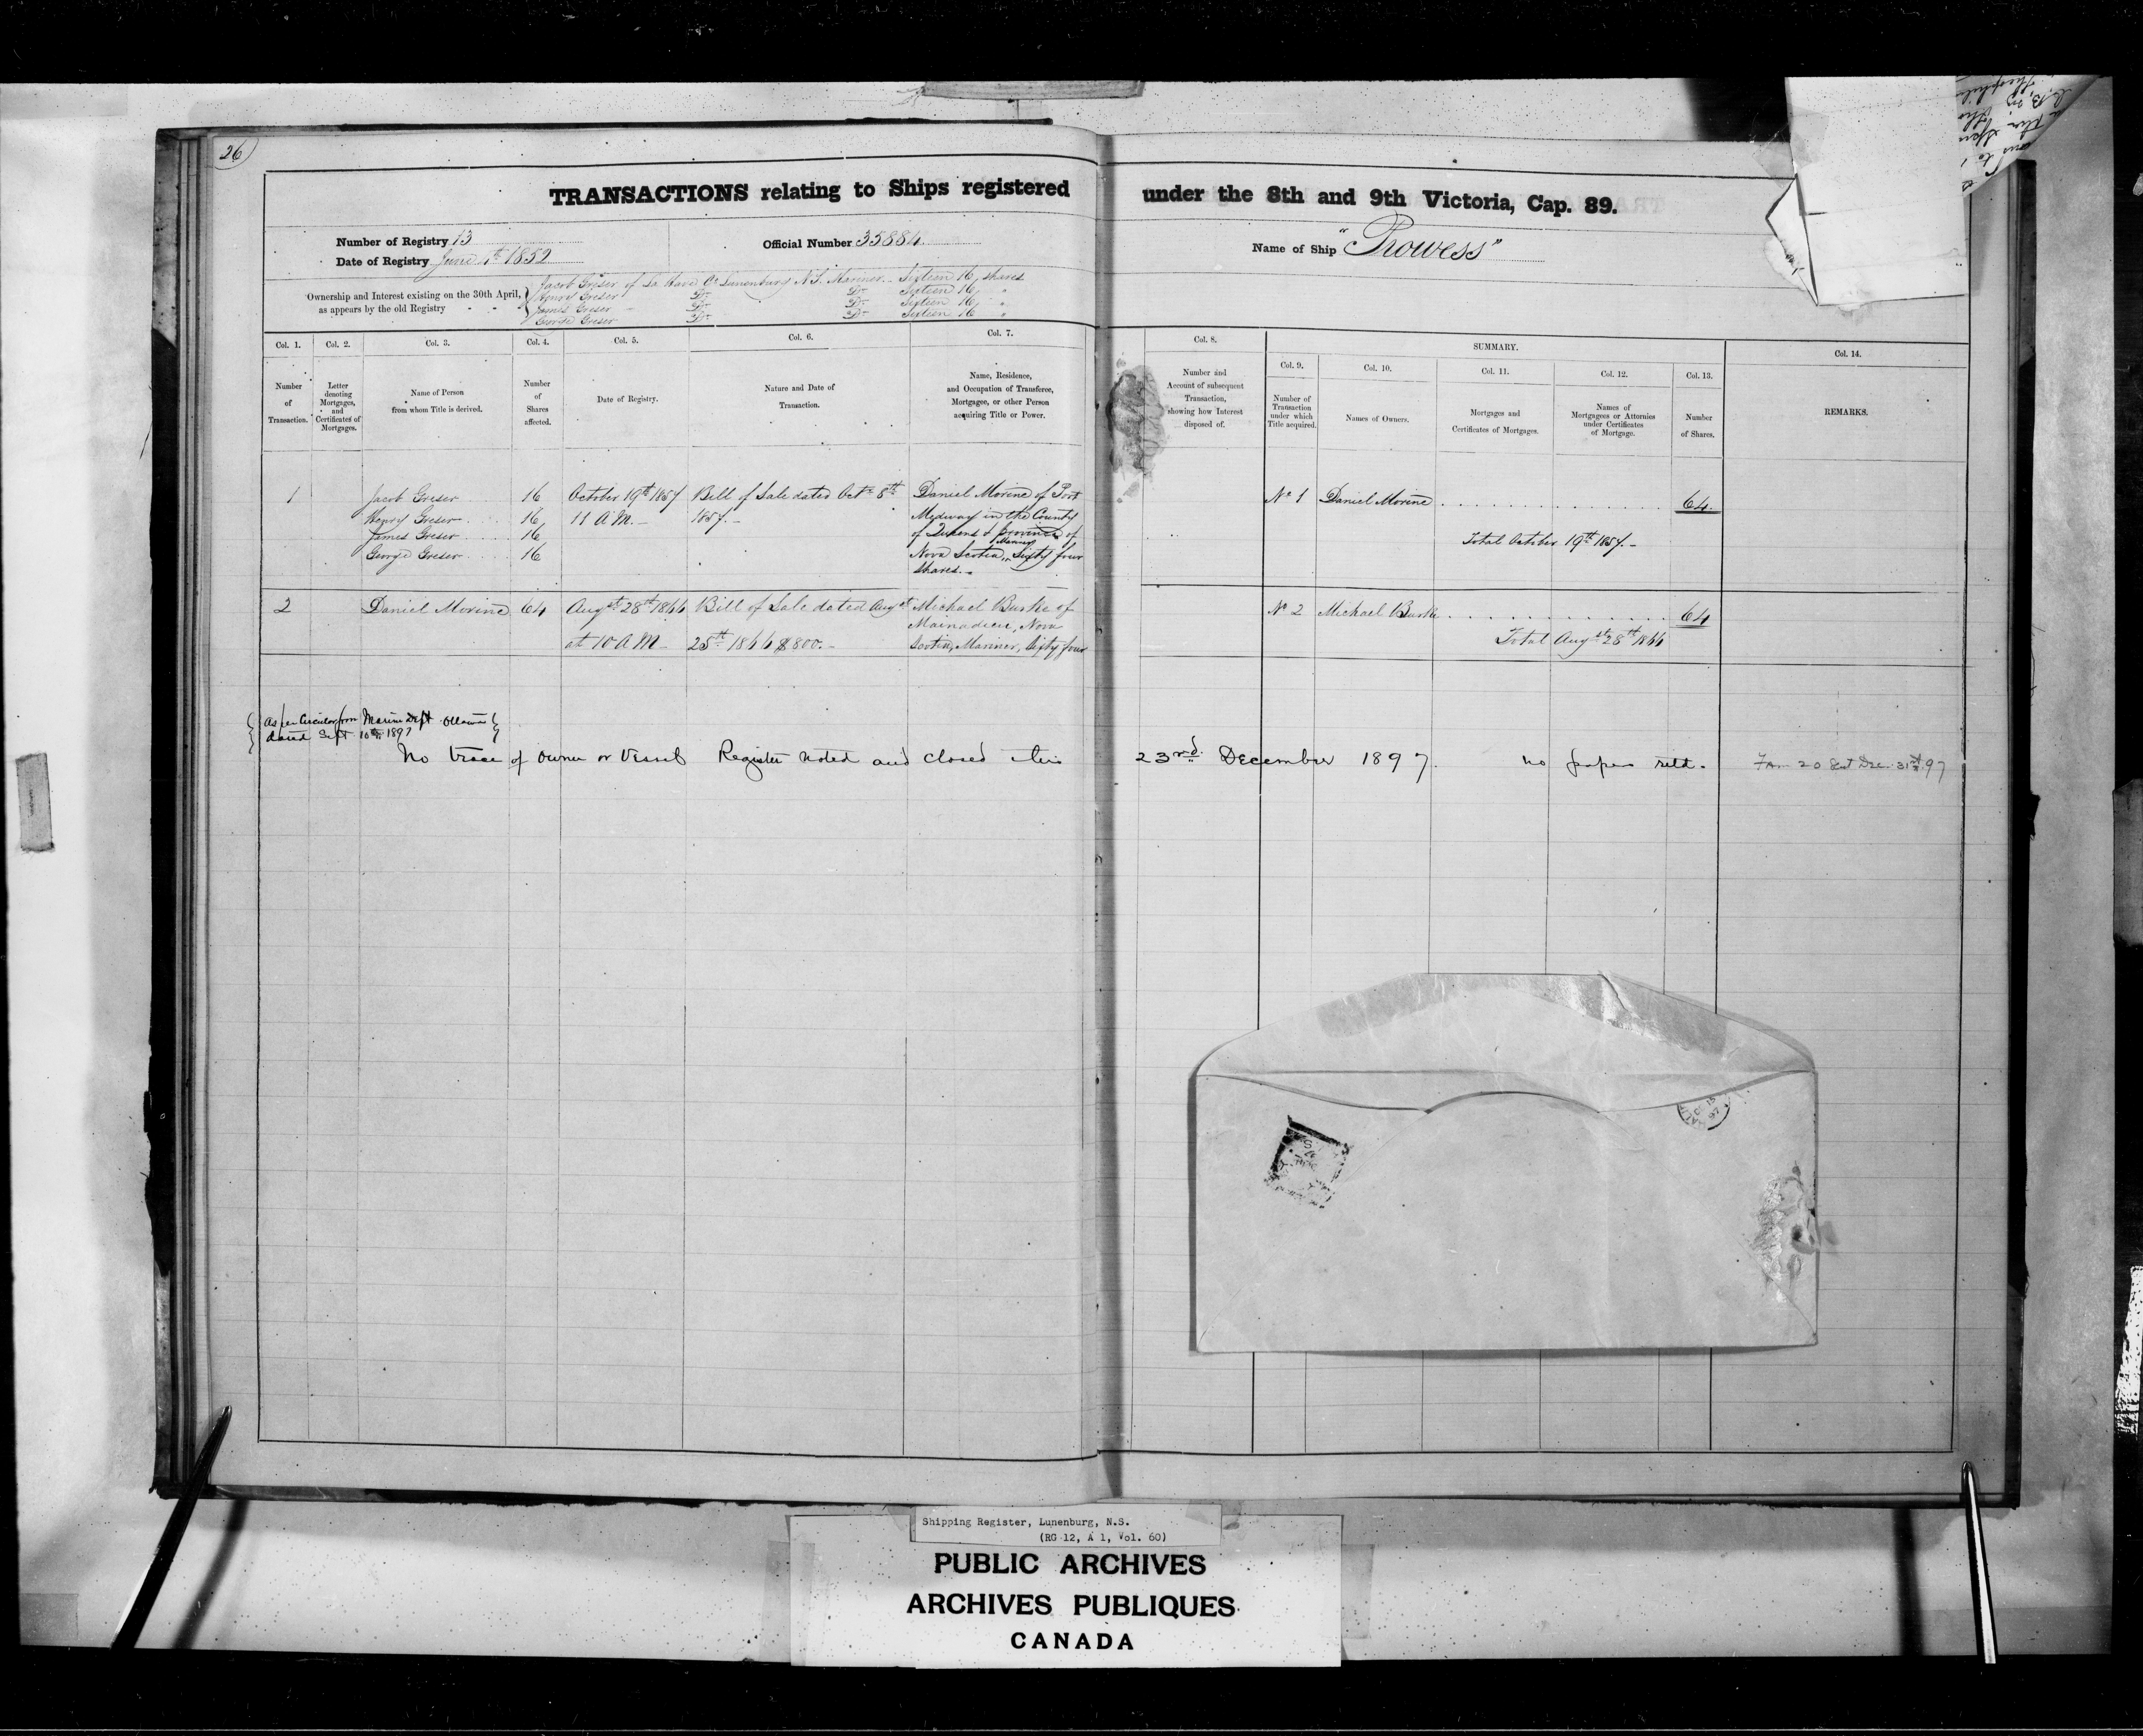 26
TRANSACTIONS relating to Ships registered under the 8th and 9th Victoria, Cap. 89.
Number of Registry 13
Official Number 35884
Name of Ship "Prowess"
Date of Registry June 1th 1852
Ownership and Interest existing on the 30th April, as appears by the old Registry
Jacob Greser of La Have Co Lunenburg N.S. Mariner Sixteen 16 shares
Henry Greser Do Do Sixteen 16 "
James Greser Do Do Sixteen 16 "
George Greser Do Do Sixteen 16 "
Col. 1. Col. 2. Col. 3. Col. 4. Col. 5. Col. 6. Col. 7. Col. 8. SUMMARY. Col. 14.
Col. 9. Col. 10. Col. 11. Col. 12. Col. 13.
Number of Transaction.
Letter denoting Mortgages, and Certificates of Mortgages.
Name of Person from whom Title is derived.
Number of Shares affected.
Date of Registry.
Nature and Date of Transaction.
Name, Residence, and Occupation of Transferee, Mortgagee, or other Person acquiring Title or Power.
Number and Account of subsequent Transaction, showing how Interest disposed of.
Number of Transaction under which Title acquired.
Names of Owners.
Mortgages and Certificates of Mortgages.
Names of Mortgagees or Attornies under Certificates of Mortgage.
Number of Shares.
REMARKS.
1 Jacob Greser 16 October 19th 1857 Bill of Sale dated Octr 8th Daniel Morine of Port No 1 Daniel Morine 64
Henry Greser 16 11 A.M. 1857.- Medway in the County
James Greser 16 of Queens & province of Total October 19th 1857.-
George Greser 16 Nova Scotia, Mariner Sixty four
Shares.-
2 Daniel Morine 64 Augst 28th 1866 Bill of Sale dated Augst Michael Burke of No 2 Michael Burke 64
Mainadieu, Nova
at 10 A M - 25th 1866 $800.- Scotia, Mariner, Sixty four Total Augst 28th 1866
As per Circular from Marine Dept Ottawa
dated Sept 10th 1897
No trace of owner or Vessel Register noted and closed this 23rd December 1897. no papers retd. Fm 20 Sent Dec. 31st 97
Shipping Register, Lunenburg, N.S.
(RG 12, A 1, Vol. 60)
PUBLIC ARCHIVES
ARCHIVES PUBLIQUES
CANADA